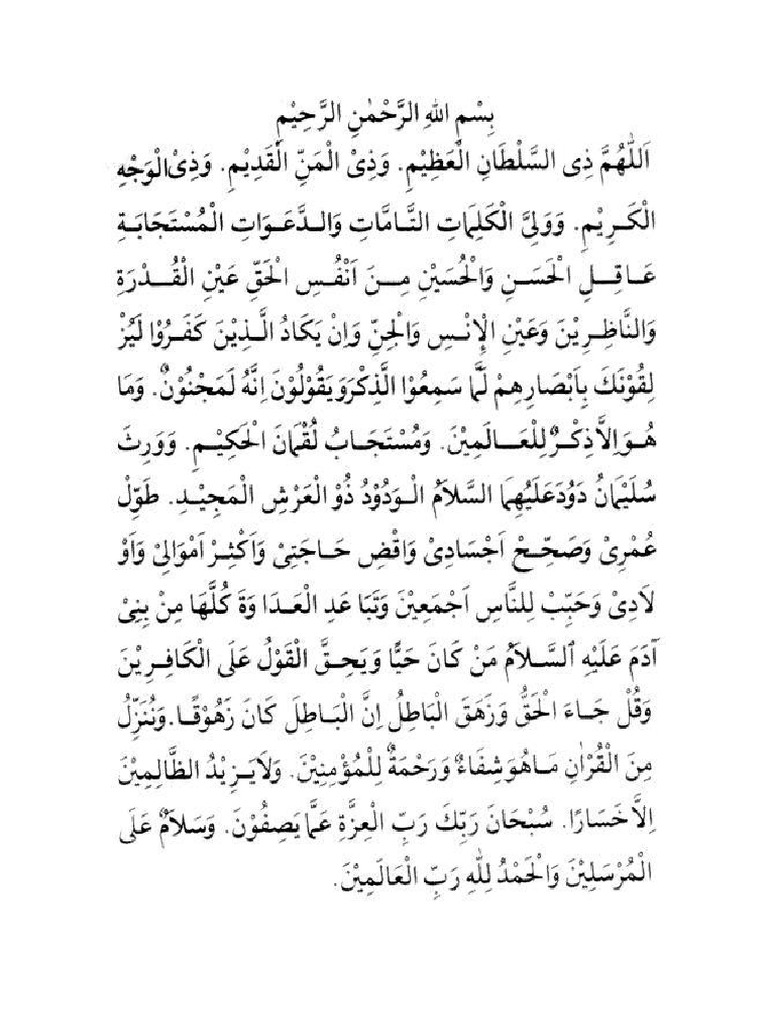 بِسْمِ اللهِ الرَّحْمٰنِ الرَّحِيْمِ
اَللّٰهُمَّ ذِى السَّلْطَانِ الْعَظِيْمِ. وَذِىْ الْمَنِّ الْقَدِيْمِ. وَذِىْ الْوَجْهِ
الْكَرِيْمِ. وَوَلِىَّ الْكَلِمَاتِ التَّامَّاتِ وَالدَّعَوَاتِ الْمُسْتَجَابَةِ
عَاقِلِ الْحَسَنِ وَالْحُسَيْنِ مِنَ اَنْفُسِ الْحَقِّ عَيْنِ الْقُدْرَةِ
وَالنَّاظِرِيْنَ وَعَيْنِ الْاِنْسِ وَالْجِنِّ وَاِنْ يَكَادُ الَّذِيْنَ كَفَرُوْا لَيُزْ
لِقُوْنَكَ بِاَبْصَارِهِمْ لَمَّا سَمِعُوْا الذِّكْرَوَيَقُوْلُوْنَ اِنَّهُ لَمَجْنُوْنٌ. وَمَا
هُوَاِلاَّذِكْرٌ لِلْعَالَمِيْنَ. وَمُسْتَجَابُ لُقْمَانَ الْحَكِيْمِ. وَوَرِثَ
سُلَيْمَانُ دَوُدَعَلَيْهِمَا السَّلاَمُ الْوَدُوْدُ ذُو الْعَرْشِ الْمَجِيْدِ. طَوِّلْ
عُمْرِىْ وَصَحِّحْ اَجْسَادِىْ وَاقْضِ حَاجَتِىْ وَاَكْثِرْ اَمْوَالِىْ وَاَوْ
لَادِىْ وَحَبِّبْ لِلنَّاسِ اَجْمَعِيْنَ وَتَبَا عَدِ الْعَدَا وَةَ كُلَّهَا مِنْ بَنِىْ
آدَمَ عَلَيْهِ السَّلاَمُ مَنْ كَانَ حَيًّا وَيَحِقَّ الْقَوْلُ عَلَى الْكَافِرِيْنَ
وَقُلْ جَاءَ الْحَقُّ وَزَهَقَ الْبَاطِلُ اِنَّ الْبَاطِلَ كَانَ زَهُوْقًا.وَنُنَزِّلُ
مِنَ الْقُرْاٰنِ مَاهُوَشِفَاءٌ وَرَحْمَةٌ لِلْمُؤْمِنِيْنَ. وَلاَيَزِيْدُ الظَّالِمِيْنَ
اِلاَّخَسَارًا. سُبْحَانَ رَبِّكَ رَبِّ الْعِزَّةِ عَمَّا يَصِفُوْنَ. وَسَلاَمٌ عَلَى
الْمُرْسَلِيْنَ وَالْحَمْدُ لِلّٰهِ رَبِّ الْعَالَمِيْنَ.